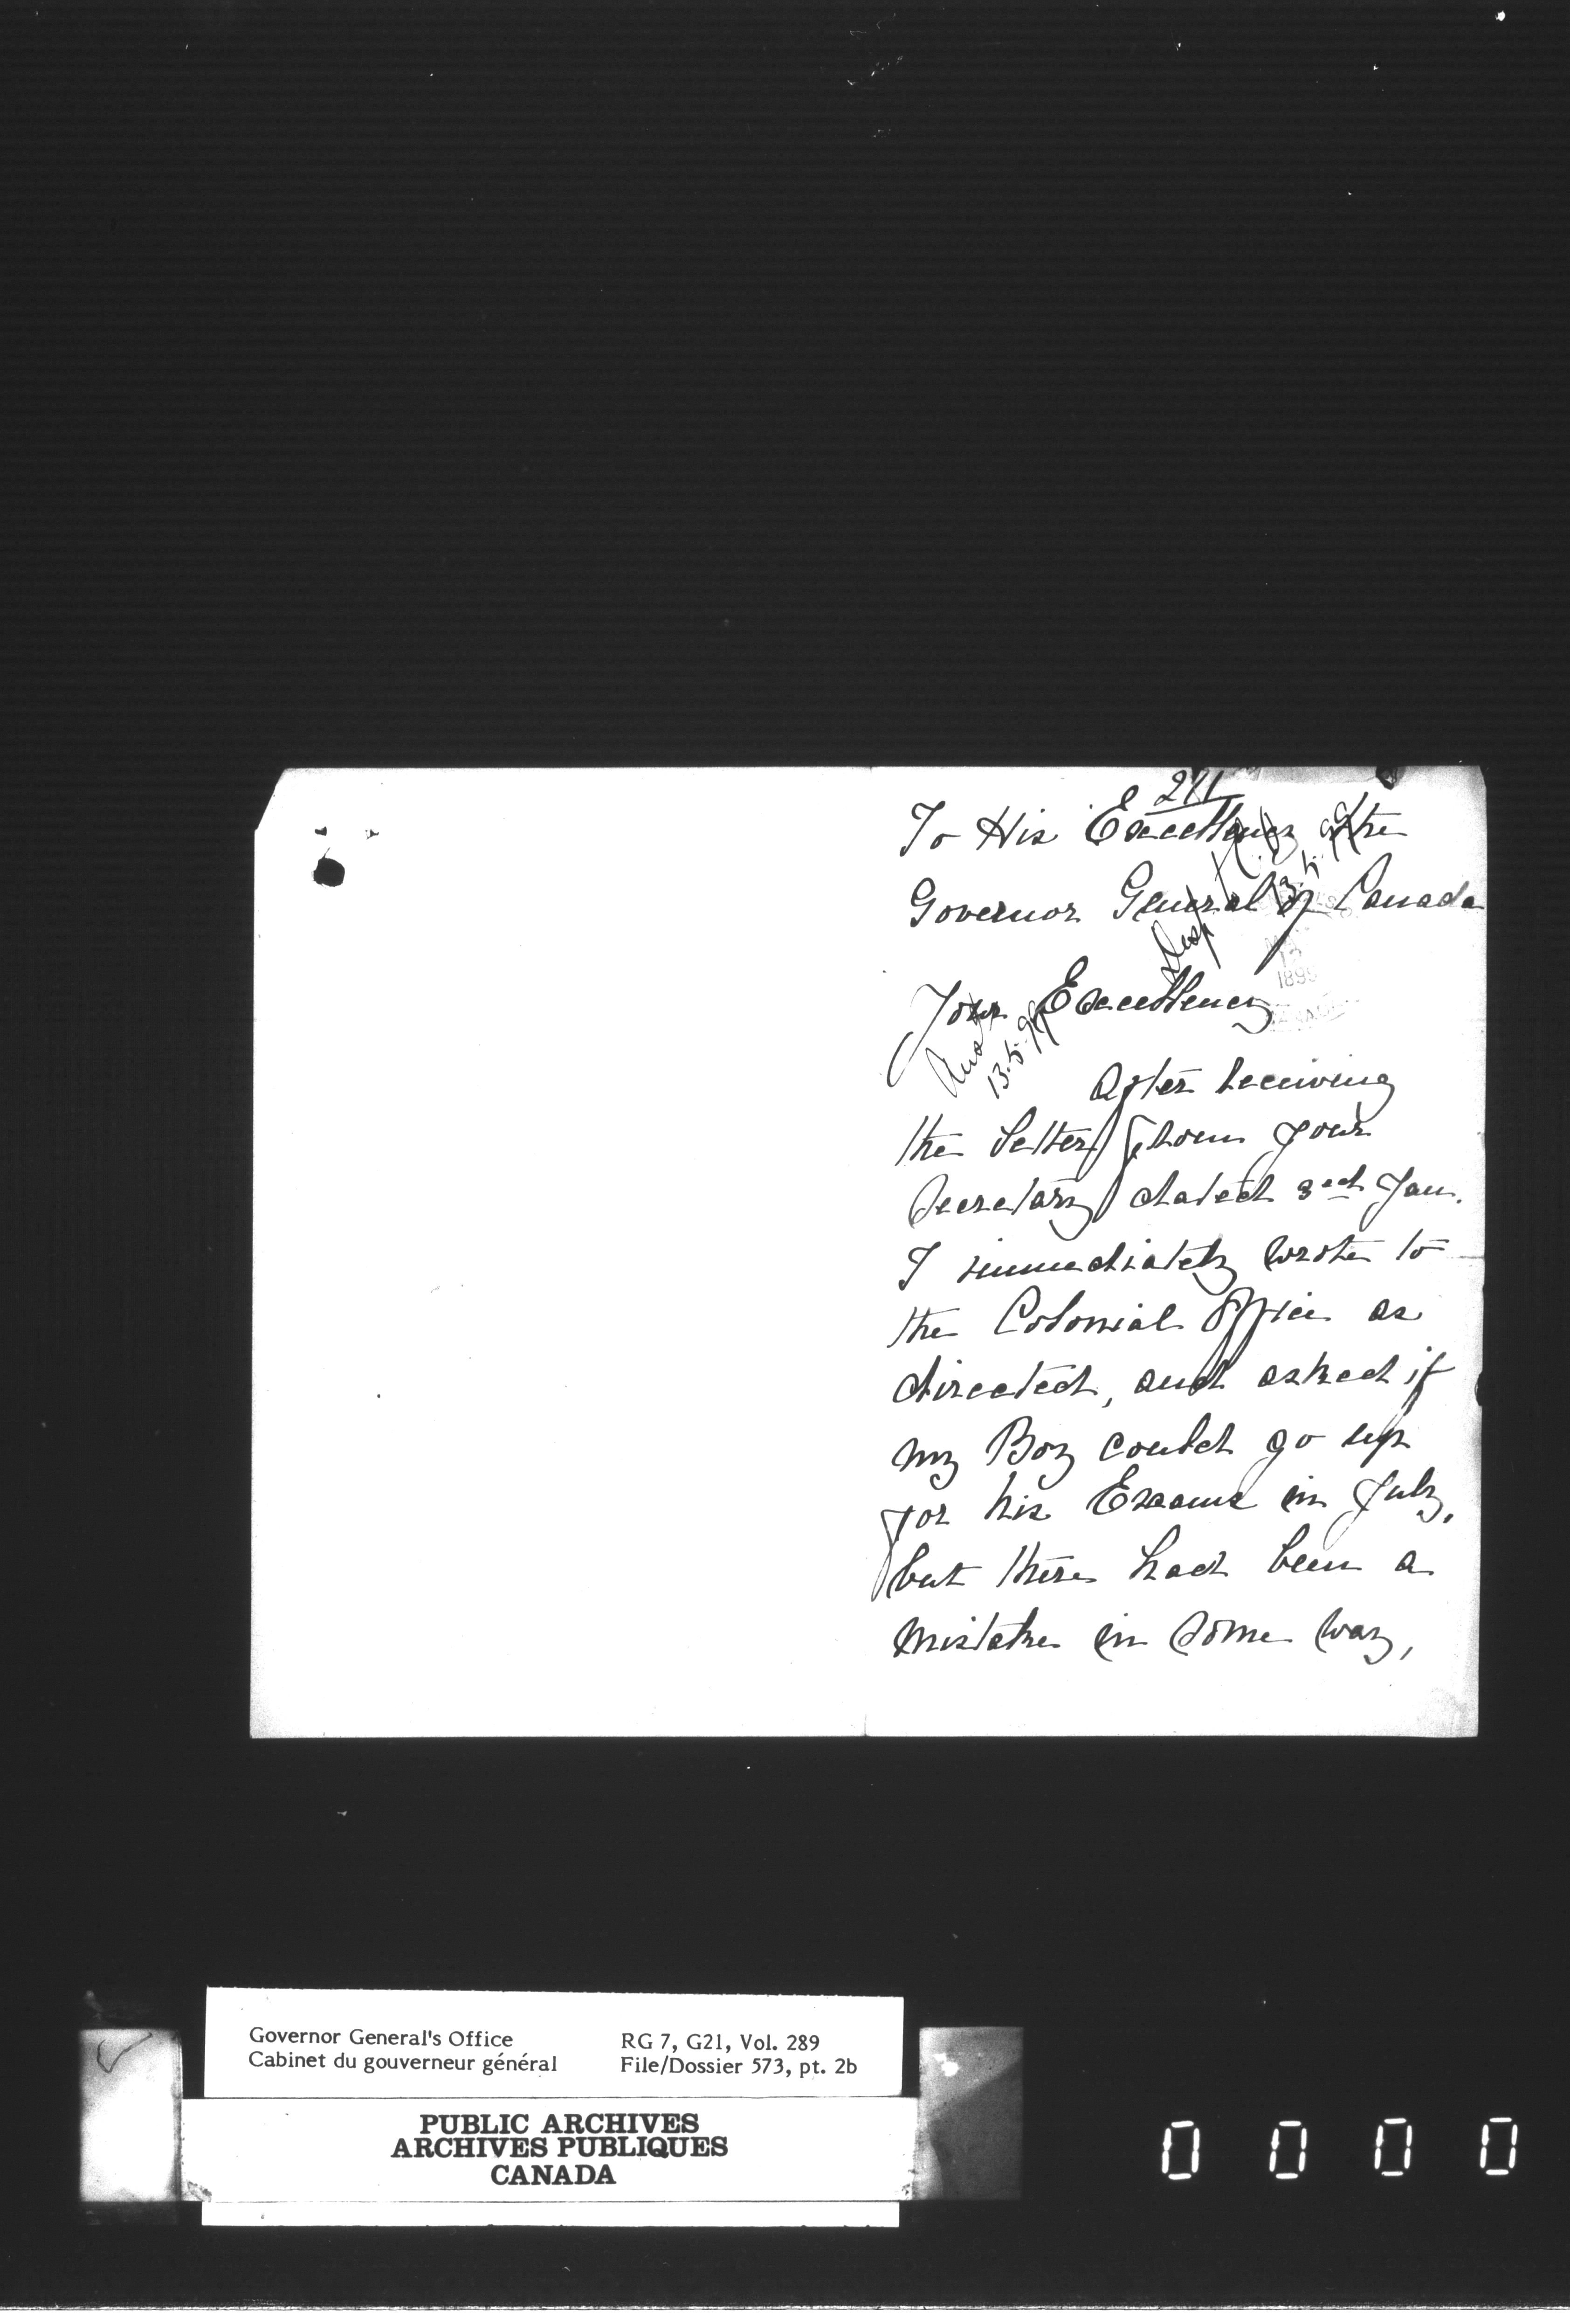 271
To His Excellency the
Governor General of Canada
Desp
13.5.99
1899
Your Excellency
Ansd
13.5.99
After receiving
the letter from your
Secretary dated 3rd Jan.
I immediately wrote to
the Colonial Office as
directed, and asked if
my Boy could go up
for his Exams in July,
but there had been a
mistake in some way,
Governor General's Office
Cabinet du gouverneur général
RG 7, G21, Vol. 289
File/Dossier 573, pt. 2b
PUBLIC ARCHIVES
ARCHIVES PUBLIQUES
CANADA
0 0 0 0